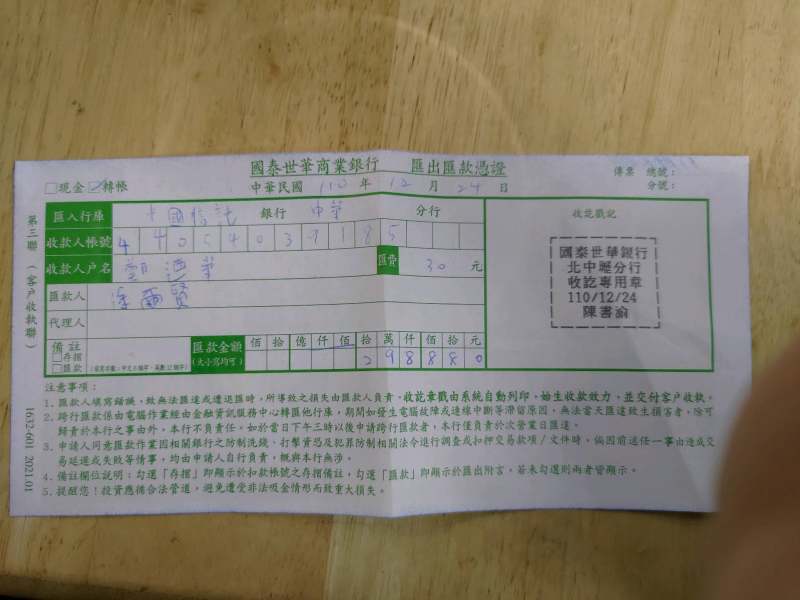 國泰世華商業銀行 匯出匯款憑證
傳票 總號：
分號：
現金 轉帳
中華民國 110 年 12 月 24 日
匯入行庫 中國信託 銀行 中華 分行
收訖戳記
收款人帳號 44054039185
收款人戶名
匯費 30 元
匯款人
代理人
備註
存摺
匯款
匯款金額
(大小寫均可)
佰 拾 億 仟 佰 拾 萬 仟 佰 拾 元
2 9 8 8 8 0
國泰世華銀行
北中壢分行
收訖專用章
110/12/24
陳書諭
第三聯（客戶收款聯）
1612-601 2021.01
注意事項：
1. 匯款人填寫錯誤，致無法匯達或遭退匯時，所導致之損失由匯款人負責。收訖章戳由系統自動列印，始生收款效力，並交付客戶收執。
2. 跨行匯款係由電腦作業經由金融資訊服務中心轉匯他行庫，期間如發生電腦故障或連線中斷等滯留原因，無法當天匯達致生損害者，除可
歸責於本行之事由外，本行不負責任。如於當日下午三時以後申請跨行匯款者，本行僅負責於次營業日匯達。
3. 申請人同意匯款作業因相關銀行之防制洗錢、打擊資恐及犯罪防制相關法令進行調查或扣押交易款項/文件時，倘因前述任一事由造成交
易延遲或失敗等情事，均由申請人自行負責，概與本行無涉。
4. 備註欄位說明：勾選「存摺」即顯示於扣款帳號之存摺備註，勾選「匯款」即顯示於匯出附言。若未勾選則兩者皆顯示。
5. 提醒您！投資應循合法管道，避免遭受非法吸金情形而致重大損失。